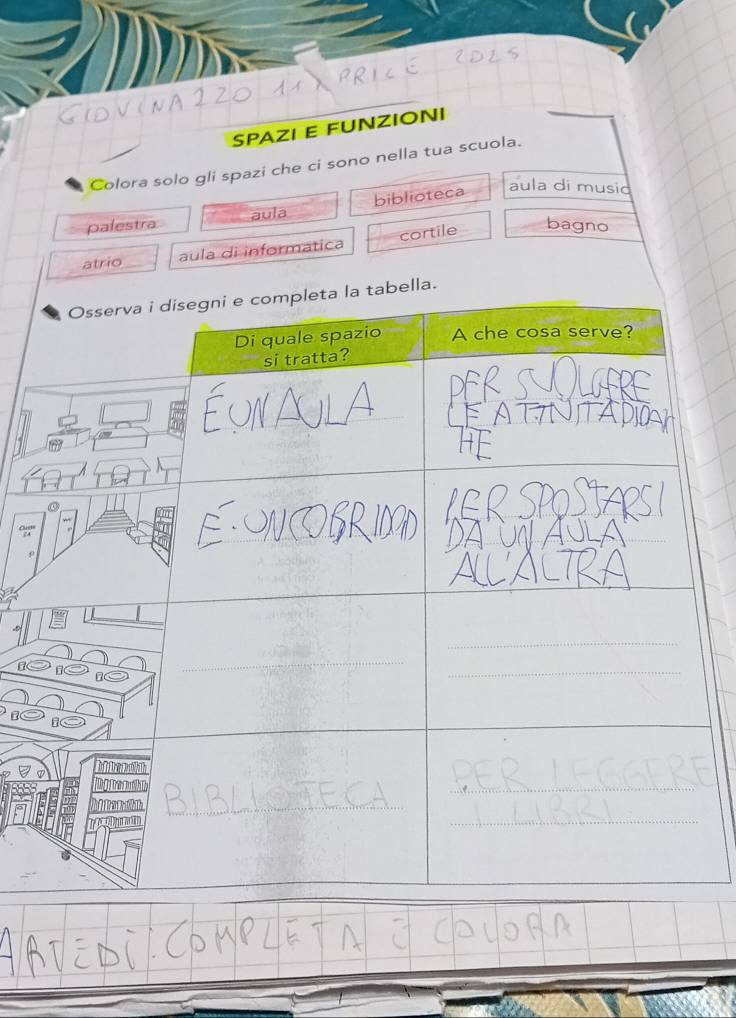 GIOVINA220 11 APRILE 2025
SPAZI E FUNZIONI
Colora solo gli spazi che ci sono nella tua scuola.
palestra aula biblioteca aula di music
atrio aula di informatica cortile bagno
Osserva i disegni e completa la tabella.
Di quale spazio
si tratta?
A che cosa serve?
É UN AULA
PER SVOLGERE
LE ATTIVITÀ DIDAT
HE
É. UN COBRIDOD
PER SPOSTARSI
DA UN AULA
ALL'ALTRA
BIBLIOTECA
PER LEGGERE
I LIBRI
COMPLETA E COLORA